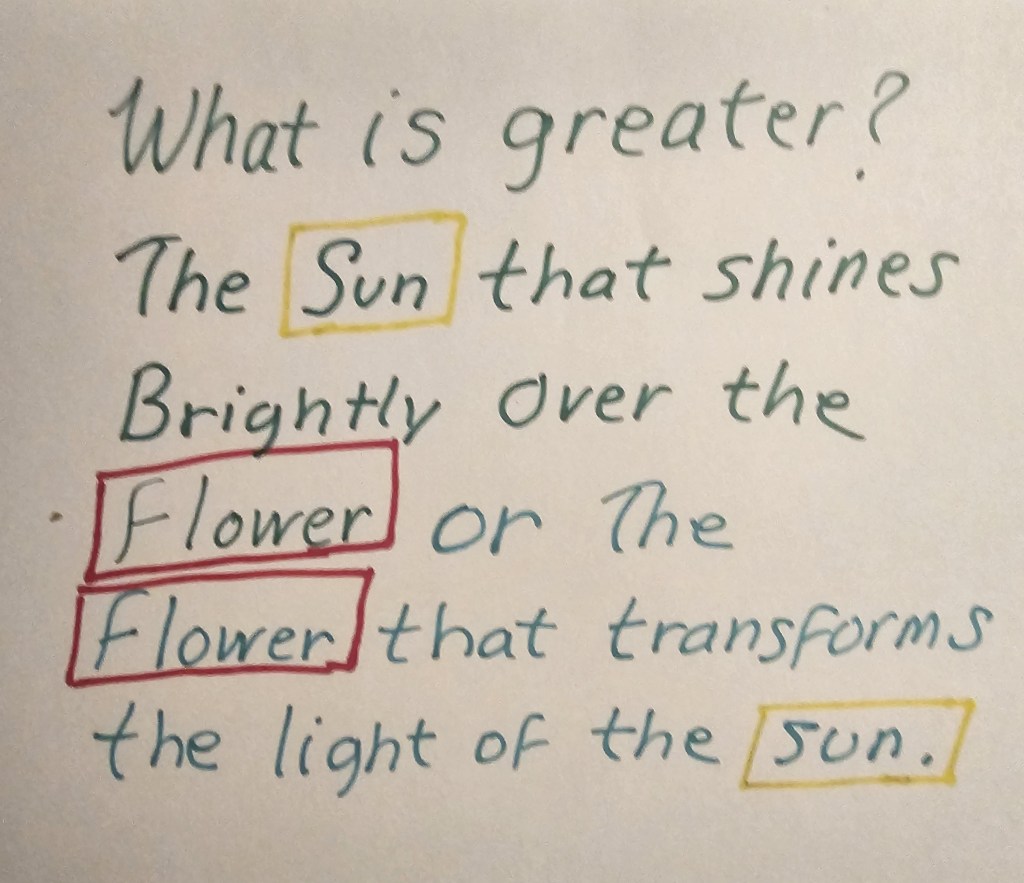 What is greater?
The Sun that shines
Brightly over the
Flower or The
Flower that transforms
the light of the sun.